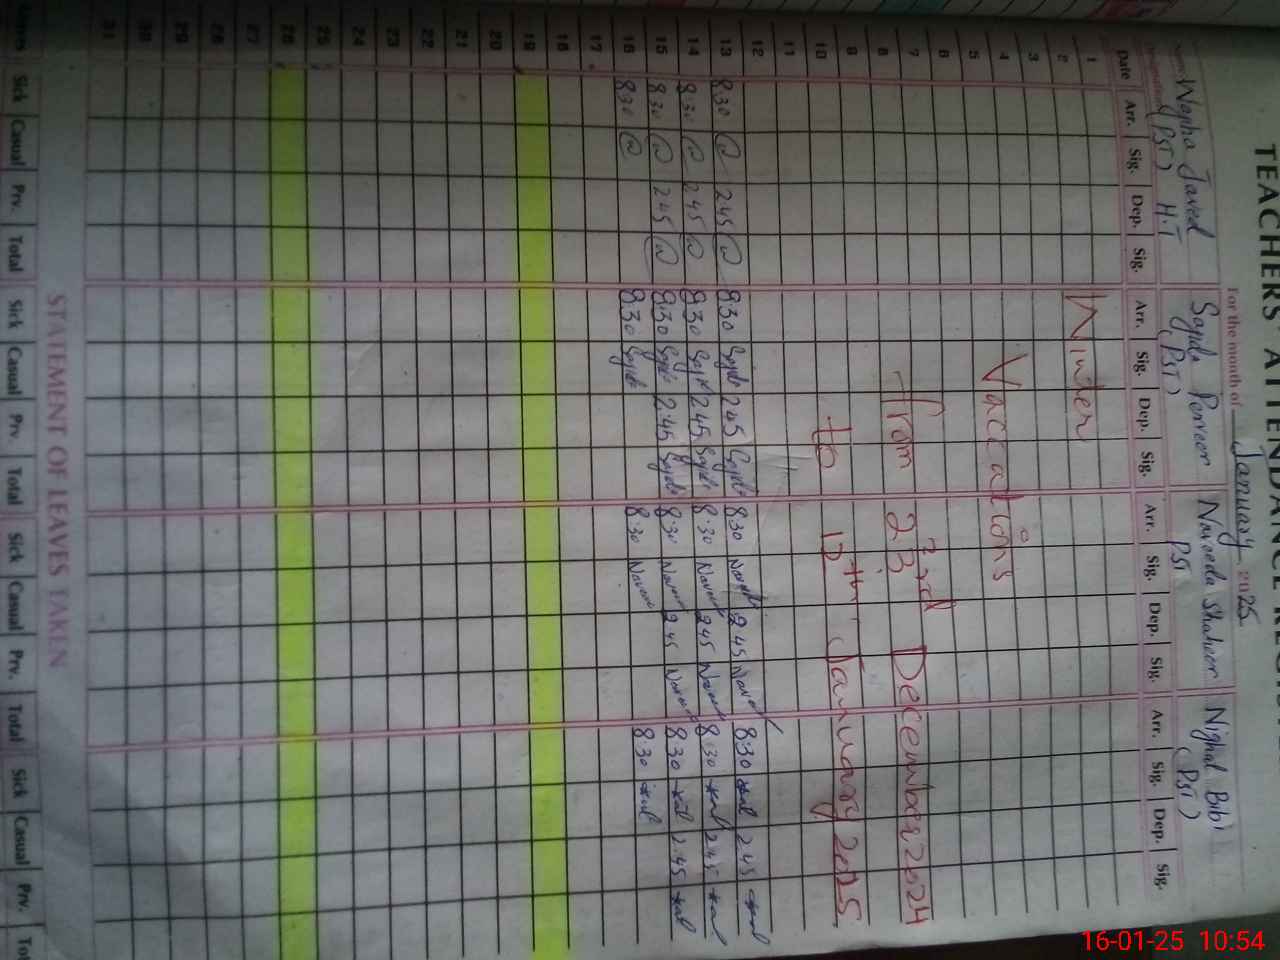 TEACHERS ATTENDANCE
For the month of January 2025
Wajiha Javed Sajida Perveen Naveeda Shaheen Nighat Bibi
(PST) H.T (PST) PST (PST)
Date Arr. Sig. Dep. Sig. Arr. Sig. Dep. Sig. Arr. Sig. Dep. Sig. Arr. Sig. Dep. Sig.
1 Winter
2
3
4 Vaccations
5
6
7 from 23rd December 2024
8
9
10 to 12th January 2025
11
12
13 8:30 2 45 8:30 Sajida 2 45 Sajida 8:30 2 45 8:30 2 45
14 8:30 2 45 8:30 Sajida 2 45 Sajida 8:30 2 45 8:30 2 45
15 8:30 2 45 8:30 Sajida 2:45 Sajida 8:30 2 45 8:30 2:45
16 8:30 8:30 Sajida 8:30 8:30
17
18
19
20
21
22
23
24
25
26
27
28
29
30
31
STATEMENT OF LEAVES TAKEN
Sick Casual Prv. Total Sick Casual Prv Total Sick Casual Prv. Total Sick Casual Prv.
16-01-25 10:54